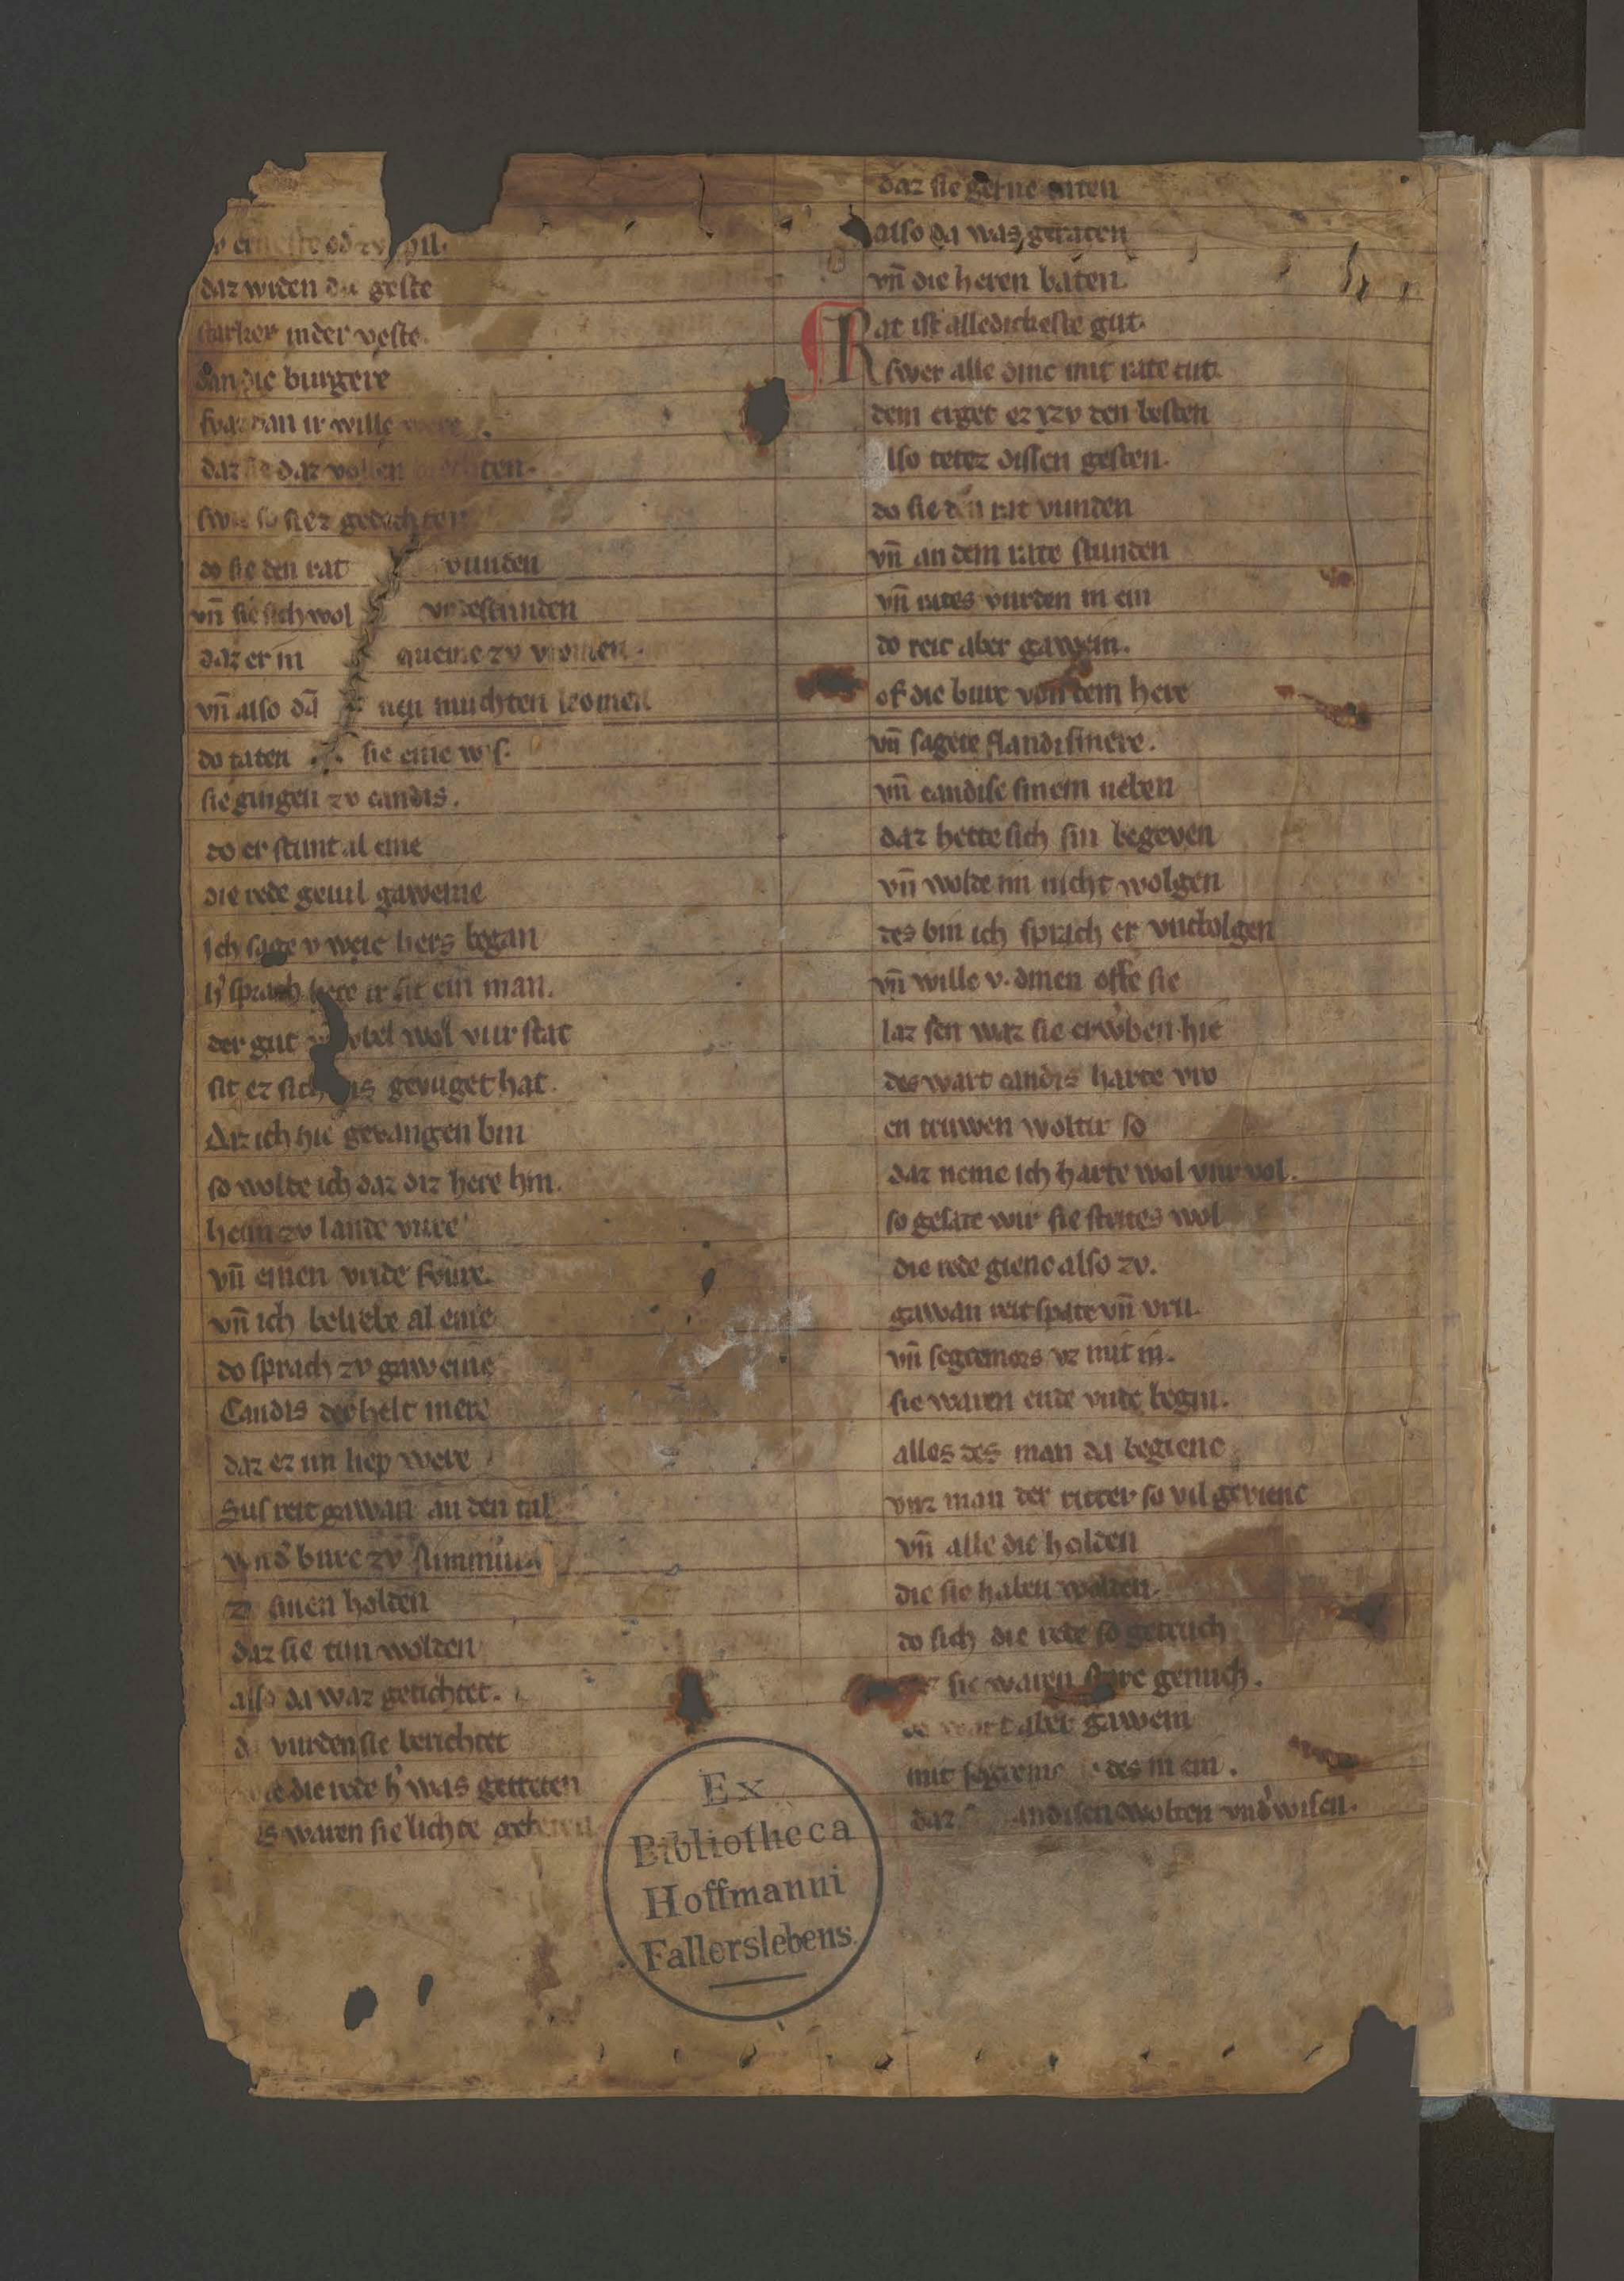 daz wrden die geste
starker in der veste.
dan die burgere
swaz dan ir wille were
daz sie daz vollen brechten.
swie so siez gedechten
do sie den rat vunden
vn̄ sie sich wol vndestunden
daz er in queme zv vromen.
vn̄ also dā nen muchten komen
do taten sie eine wis.
sie gingen zv candis.
do er stunt al eine
die rede geuil gaweine
ich sage v weie hers began
h' sprach here ir sit ein man.
der gut vbel wol vur stat
sit ez sich gevuget hat.
daz ich hie gevangen bin
so wolte ich daz diz here hin.
heim zv lande vure
vn̄ einen vride swure.
vn̄ ich belibe al eine
do sprach zv gaweine
Candis der helt mere
daz ez im liep were
Sus reit gawan an den tal
vn̄ d' burc zv
zv sinen holden
daz sie tun wolden
also da waz getichtet.
do vurden sie berichtet
die rede h' was getreten
es waren sie lichte gebeten
daz sie gerne taten
also da was geraten
vn̄ die heren baten.
Rat ist alledickeste gut.
swer alle dinc mit rate tut.
dem erget ez zv den besten
also tetez dissen gesten.
do sie den rat vunden
vn̄ an dem rate stunden
vn̄ rates vurden in ein
do reit aber gawein.
of die burc von dem here
vn̄ sagete flandismere.
vn̄ candise sinem neben
daz hette sich sin begeven
vn̄ wolde im nicht wolgen
des bin ich sprach er vnrbolgen
vn̄ wille v. dinen offe sie
laz sen waz sie erw'ben hie
des wart candis harte vro
en truwen woltir so
daz neme ich harte wol vur vol.
so gesate wir sie stetes wol
die rede gienc also zv.
gawan reit spate vn̄ vru.
vn̄ segremors vz mit im.
sie waren ende vnde begin.
alles des man da begienc
vnz man der ritter so vil gevienc
vn̄ alle die holden
die sie haben wolden.
do sich die rede so getruch
sie waren genuch.
do wart aber gawein
mit segremo des in ein.
daz candisen wolten vnd'wisen.
Ex
Bibliotheca
Hoffmanni
Fallerslebens.